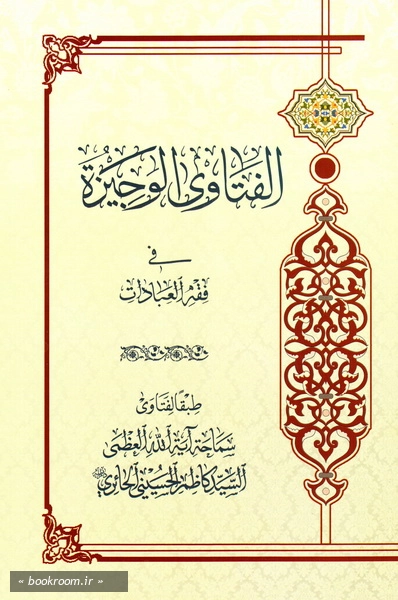 الفتاوى الوجيزة
في
فقه العبادات
طبقا لفتاوى
سماحة آية الله العظمى
السيد كاظم الحسيني الحائري
« bookroom.ir »